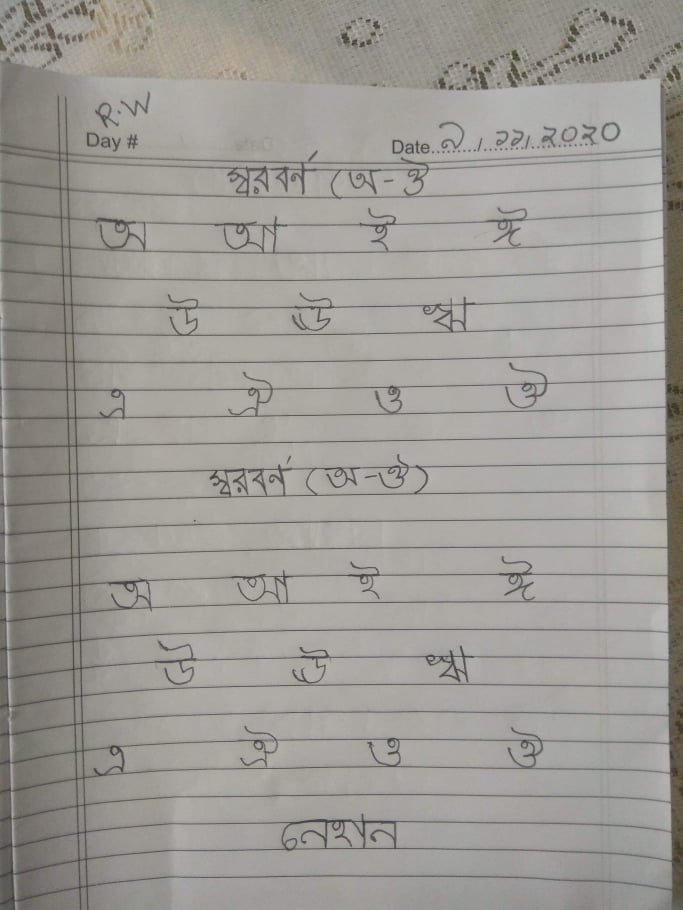 R.W
Day # Date ৯/১১/২০২০
স্বরবর্ন (অ-ঔ
অ আ ই ঈ
উ ঊ ঋ
এ ঐ ও ঔ
স্বরবর্ন (অ-ঔ)
অ আ ই ঈ
উ ঊ ঋ
এ ঐ ও ঔ